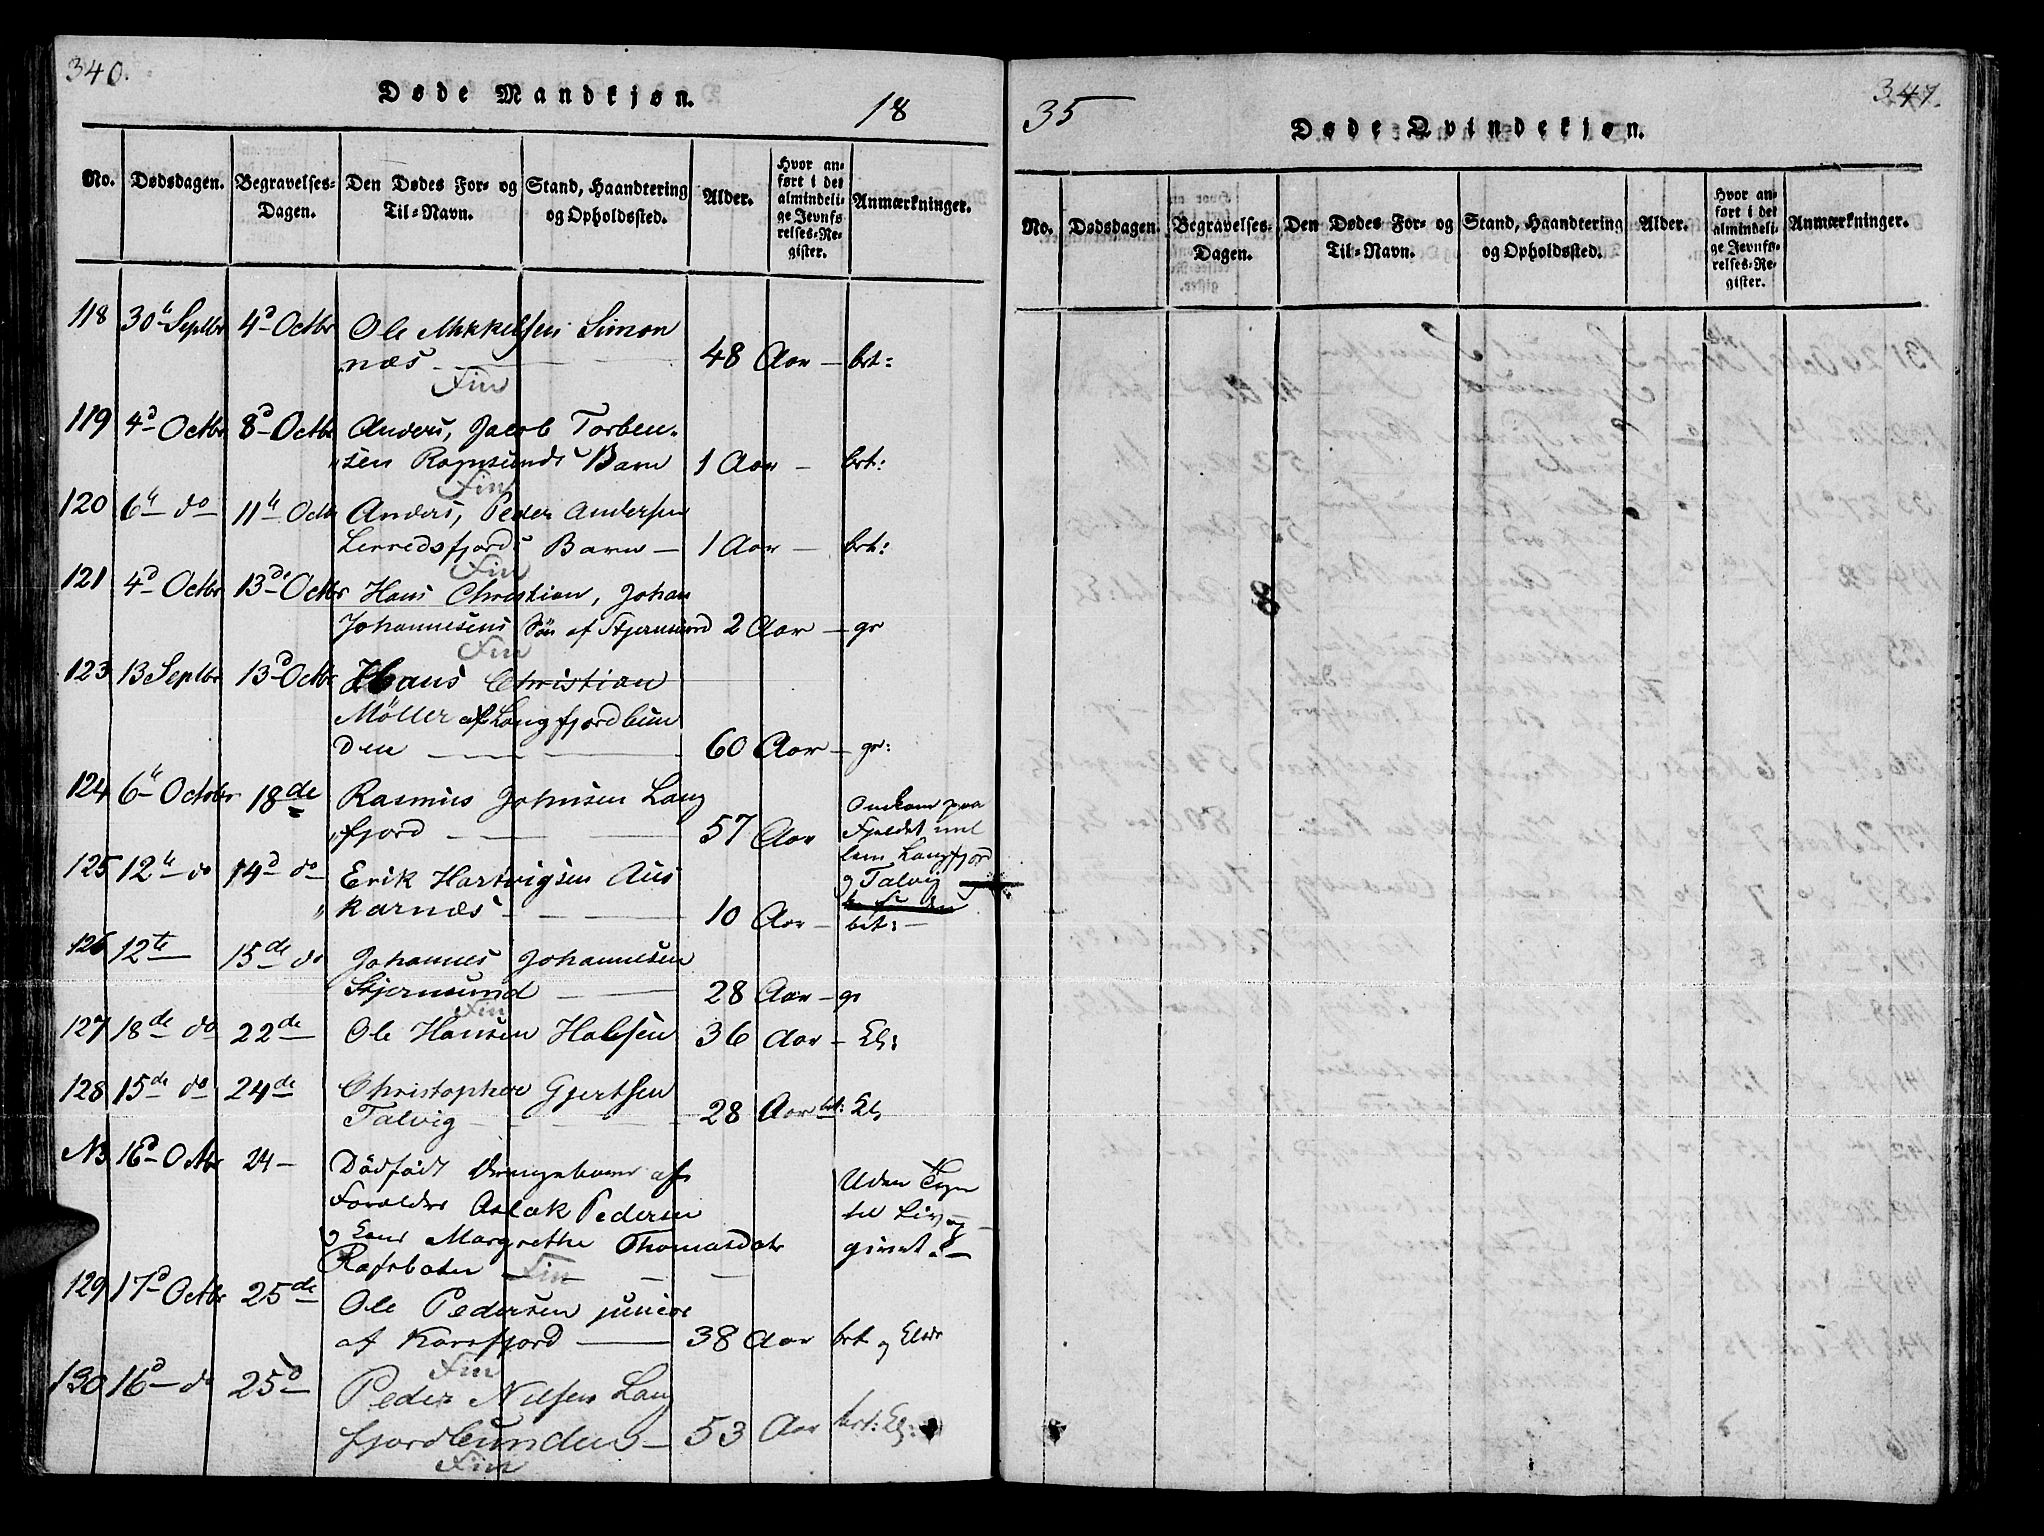 340.
Døde Mandkjøn.
18
No.
Dødsdagen.
Begravelses-
Dagen.
Den Dødes For- og
Til-Navn.
Stand, Haandtering
og Opholdssted.
Alder.
Hvor an-
ført i det
almindeli-
ge Jevnfø-
relses-Re-
gister.
Anmærkninger.
118 30te Septbr 4d Octbr Ole Mikkelsen Simon
næs 48 Aar brt:
Fin
119 4d Octbr 8d Octbr Anders, Jacob Torben-
sen Rognsunds Barn 1 Aar brt:
Fin
120 6te do 11te Octbr Anders, Peder Andersen
Lerredsfjords Barn 1 Aar brt:
Fin
121 4d Octbr 13de Octbr Hans Christian, Johan
Johannesens Søn af Stjernsund 2 Aar gr
Fin
123 13 Septbr 13d Octbr Hans Christian
Möller af Langfjordbun
den 60 Aar gr:
124 6te Octobr 18de Rasmus Johnsen Lang
fjord 57 Aar
Omkom paa
Fjeldet mel
lem Langfjord
og Talvig
125 12te do 14d do Erik Hartvigsen Aus
karnæs 10 Aar brt:
126 12te 15de do Johannes Johannesen
Stjernsund 28 Aar gr
Fin
127 18de do 22de Ole Hansen Halsen 36 Aar El:
128 15de do 24de Christopher Gjertsen
Talvig 28 Aar brt: El,
NB 16d Octbr 24 Dödfödt Drengebarn af
Forældre Aslak Pedersen
og Margrethe Thomasdatr
Rafsbaten Fin
Uden Tegn
til Liv og
givet.
129 17d Octbr 25de Ole Pedersen junior
af Korsfjord 38 Aar brt og Eldr
Fin
130 16d do 25d Peder Nilsen Lang
fjordbunden 53 Aar brt: El:
Fin
35
347.
Døde Qvindekjøn.
No.
Dødsdagen.
Begravelses-
Dagen.
Den Dødes For- og
Til-Navn.
Stand, Haandtering
og Opholdssted.
Alder.
Hvor an-
ført i det
almindeli-
ge Jevnfø-
relses-Re-
gister.
Anmærkninger.